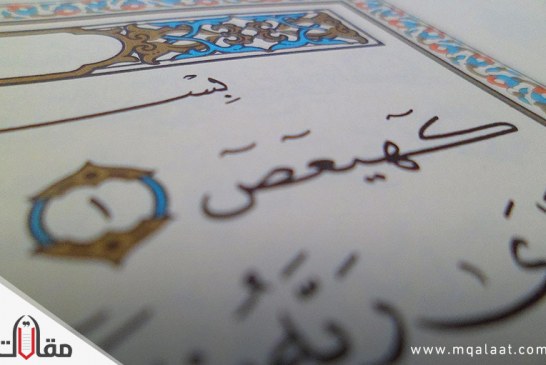 بِسْ
كٓهيعٓصٓ ١
رَبَّهُ
مقالات
www.mqalaat.com